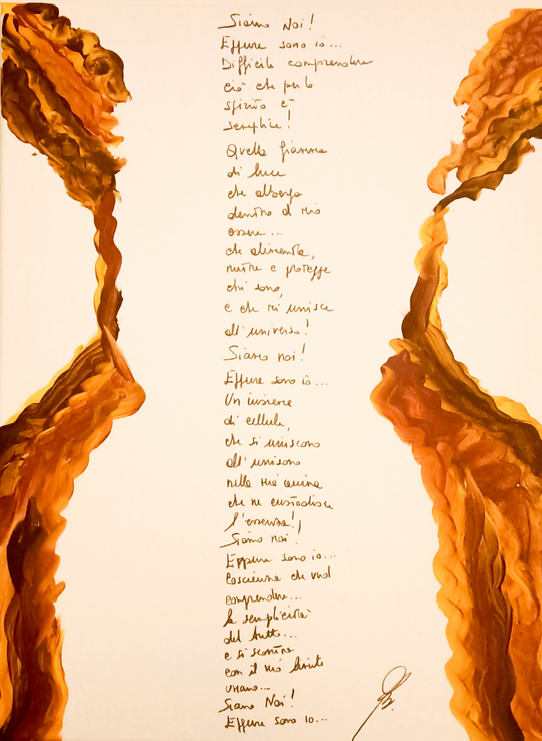 Siamo Noi!
Eppure sono io...
Difficile comprendere
ciò che per lo
spirito è
semplice!
Quella fiamma
di luce
che alberga
dentro il mio
essere...
che alimenta,
nutre e protegge
chi sono,
e che mi unisce
all'universo!
Siamo noi!
Eppure sono io...
Un insieme
di cellule,
che si uniscono
all'unisono
nella mia anima
che ne custodisce
l'essenza!
Siamo noi!
Eppure sono io...
Coscienze che vuol
comprendere...
la semplicità
del tutto...
e si scontra
con il mio limite
umano...
Siamo Noi!
Eppure sono io...